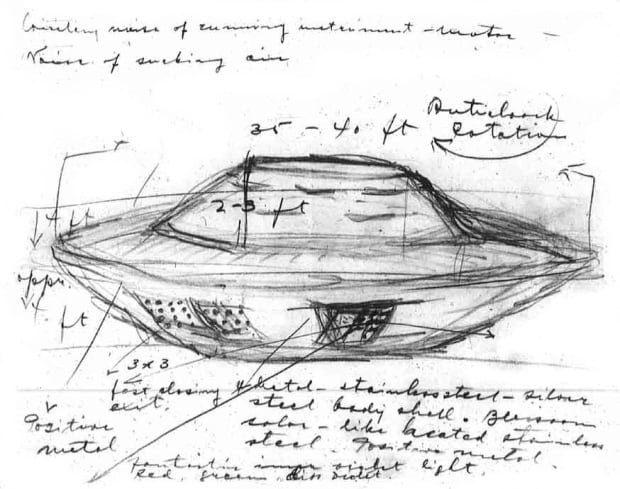 noise of running instrument - motor -
Noise of sucking air
35 - 40 ft
Anticlock
Rotation
4 ft
2 - 3 ft
appr.
4. ft
3 x 3
fast closing
exit.
Metal - stainless steel - silver
steel body shell.
color - like heated stainless
steel. Positive metal.
Positive
metal
Fantastic inner light.
Red, green